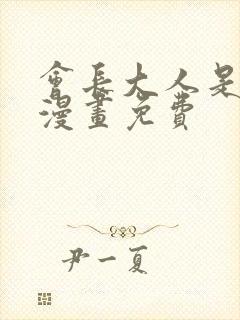 會長大人是
漫畫免費
尹一夏